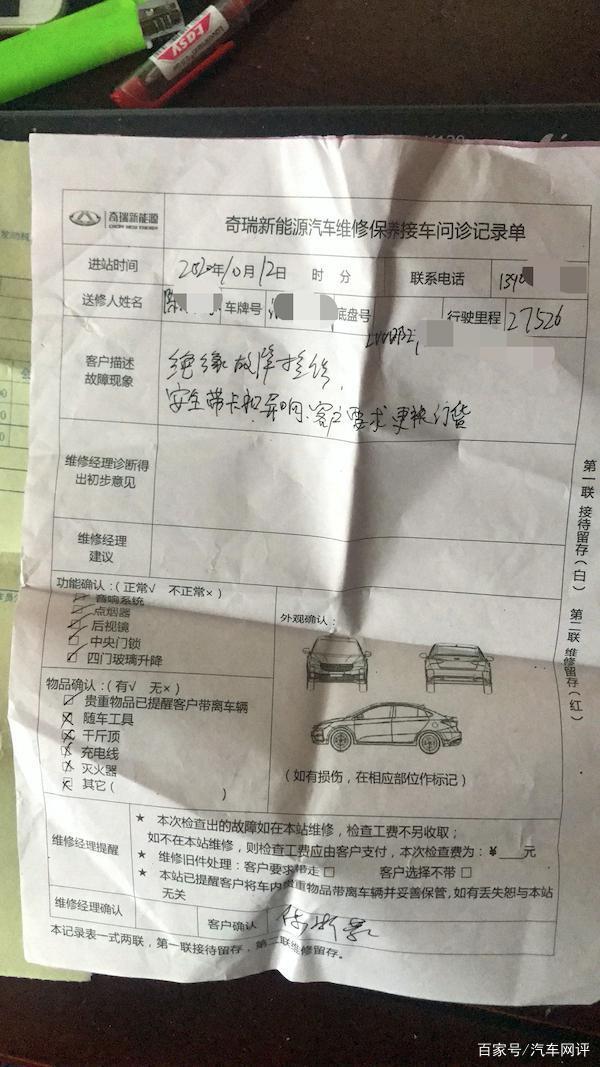 EASY
奇瑞新能源
CHERY NEW ENERGY
奇瑞新能源汽车维修保养接车问诊记录单
进站时间 2020年10月12日 时 分 联系电话 139
送修人姓名 陈 车牌号 底盘号 行驶里程 27526
客户描述
故障现象
绝缘故障报修,
安全带卡扣异响、客户要求更换订货
维修经理诊断得
出初步意见
维修经理
建议
功能确认:(正常√ 不正常×)
音响系统
点烟器
后视镜
中央门锁
四门玻璃升降
外观确认:
物品确认:(有√ 无×)
贵重物品已提醒客户带离车辆
随车工具
千斤顶
充电线
灭火器
其它( )
(如有损伤,在相应部位作标记)
维修经理提醒
★ 本次检查出的故障如在本站维修,检查工费不另收取;
如不在本站维修,则检查工费应由客户支付,本次检查费为:¥___元
★ 维修旧件处理:客户要求带走□ 客户选择不带□
★ 本站已提醒客户将车内贵重物品带离车辆并妥善保管,如有丢失恕与本站
无关
维修经理确认 客户确认
本记录表一式两联,第一联接待留存,第二联维修留存。
第一联 接待留存(白) 第二联 维修留存(红)
百家号/汽车网评